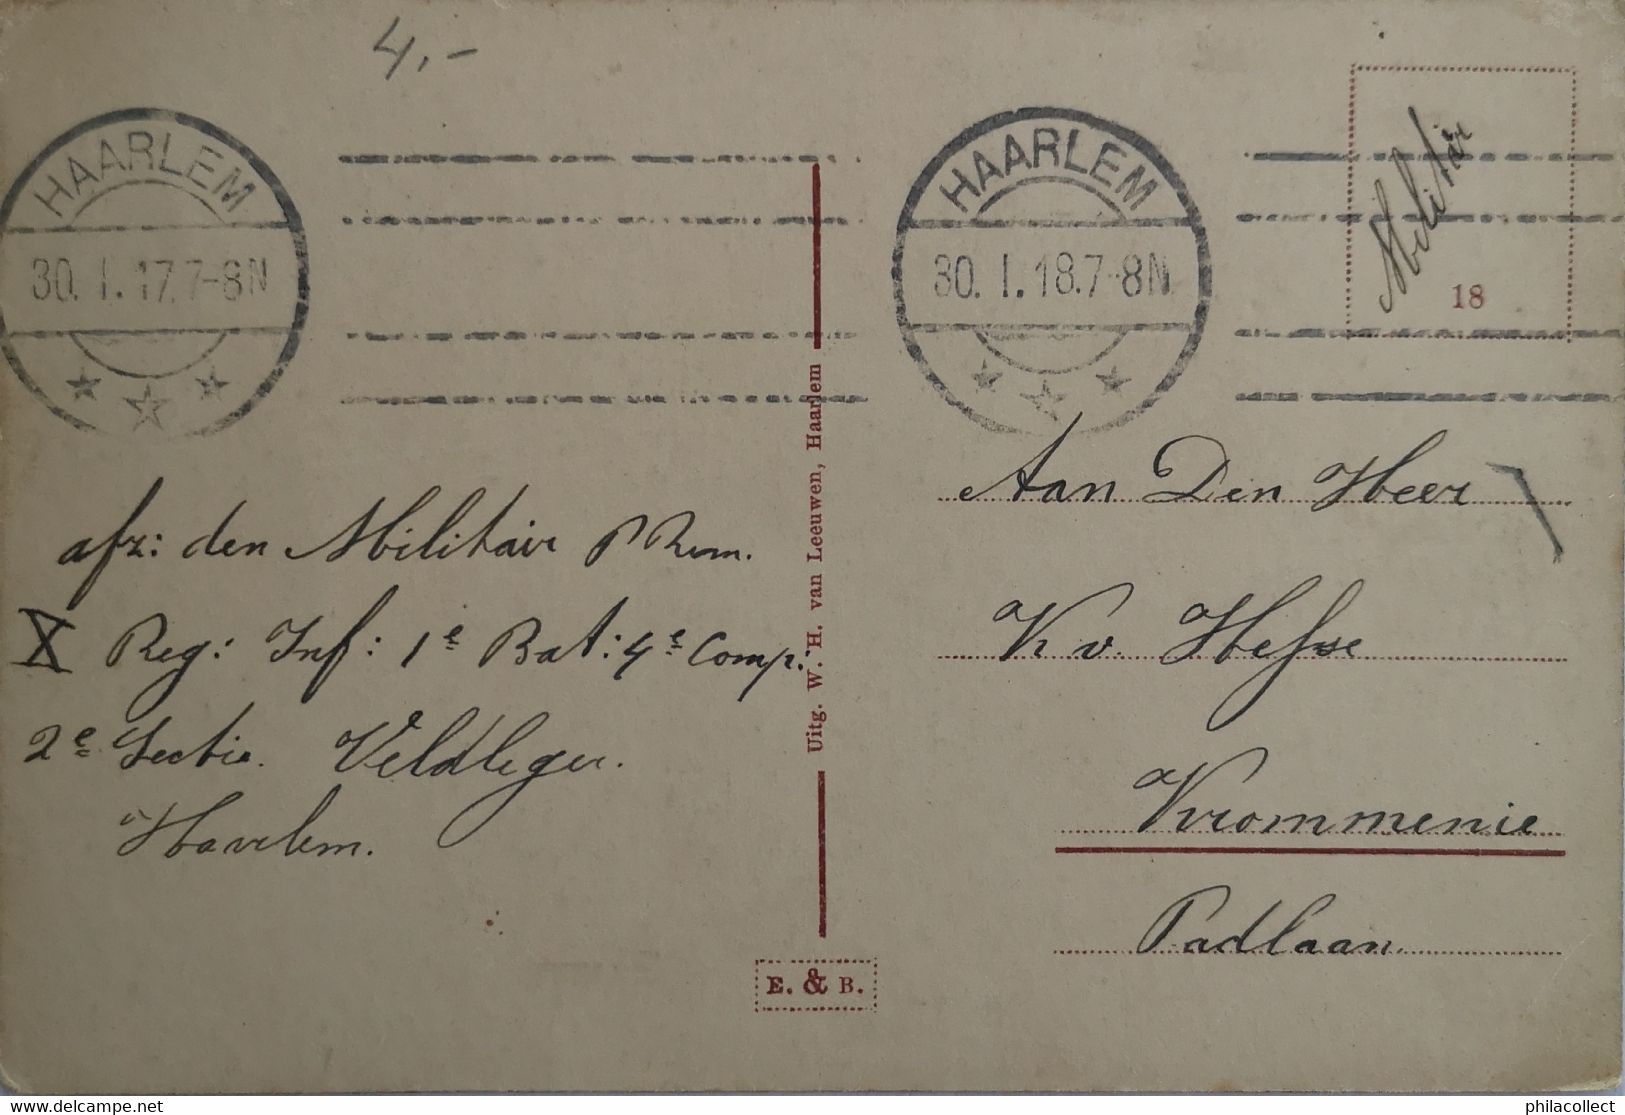 4,-
HAARLEM
30.I.17.7-8N
HAARLEM
30.I.18.7-8N
Militair
18
afz: den Militair P Rem.
X Reg: Inf: 1e Bat: 4e Comp:
2e Sectie. Veldleger.
Haarlem.
Uitg. W. H. van Leeuwen, Haarlem
E. & B.
Aan Den Heer
K v. Hesse
Krommenie
Padlaan.
delcampe.net
philacollect